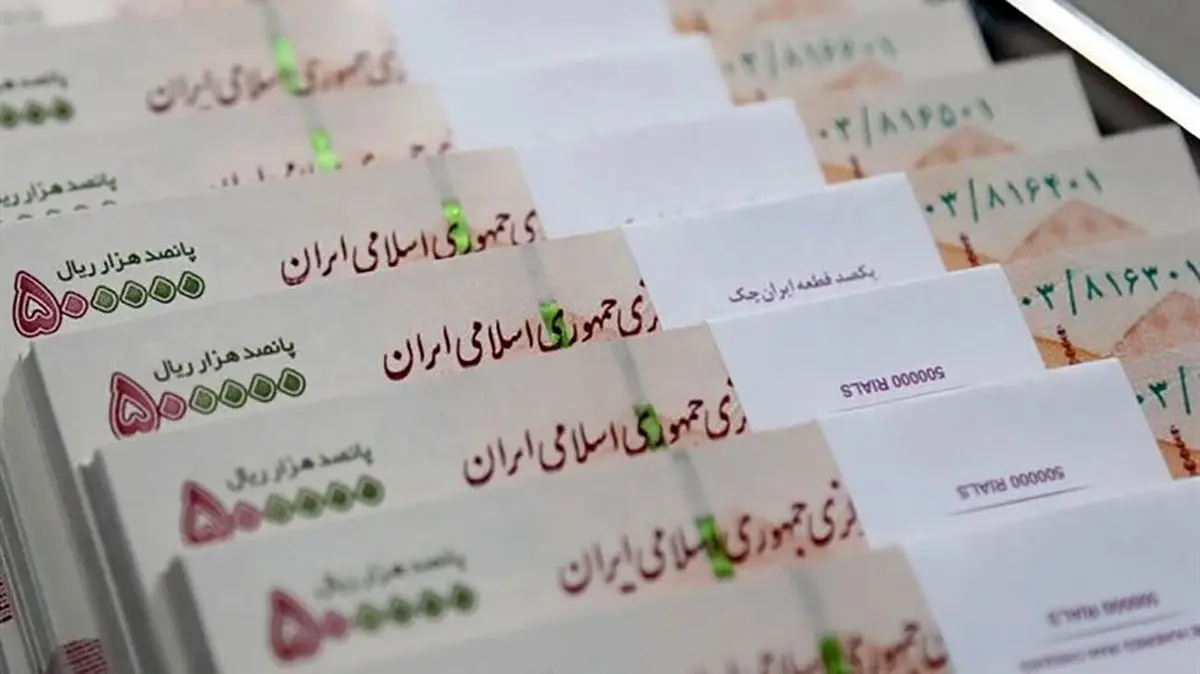 پانصد هزار ریال
جمهوری اسلامی ایران
۰۳/۸۱۶۶۰۱
پانصد هزار ری
۰۳/۸۱۶۵۰۱
پانصد هزار ریال
۵۰۰۰۰۰
ری جمهوری اسلامی ایران
۰۳/۸۱۶۴۰۱
یکصد قطعه ایران چک
پانصد هزار ریال
۵۰۰۰۰۰
زی جمهوری اسلامی ایران
۰۳/۸۱۶۳۰۱
500000 RIALS
پانصد هزار ریال
۵۰۰۰۰۰
زی جمهوری اسلامی ایران
۰۳/
500000 RIALS
پانصد هزار ریال
۵۰۰۰۰۰
کزی جمهوری اسلامی ایران
500000 RIALS